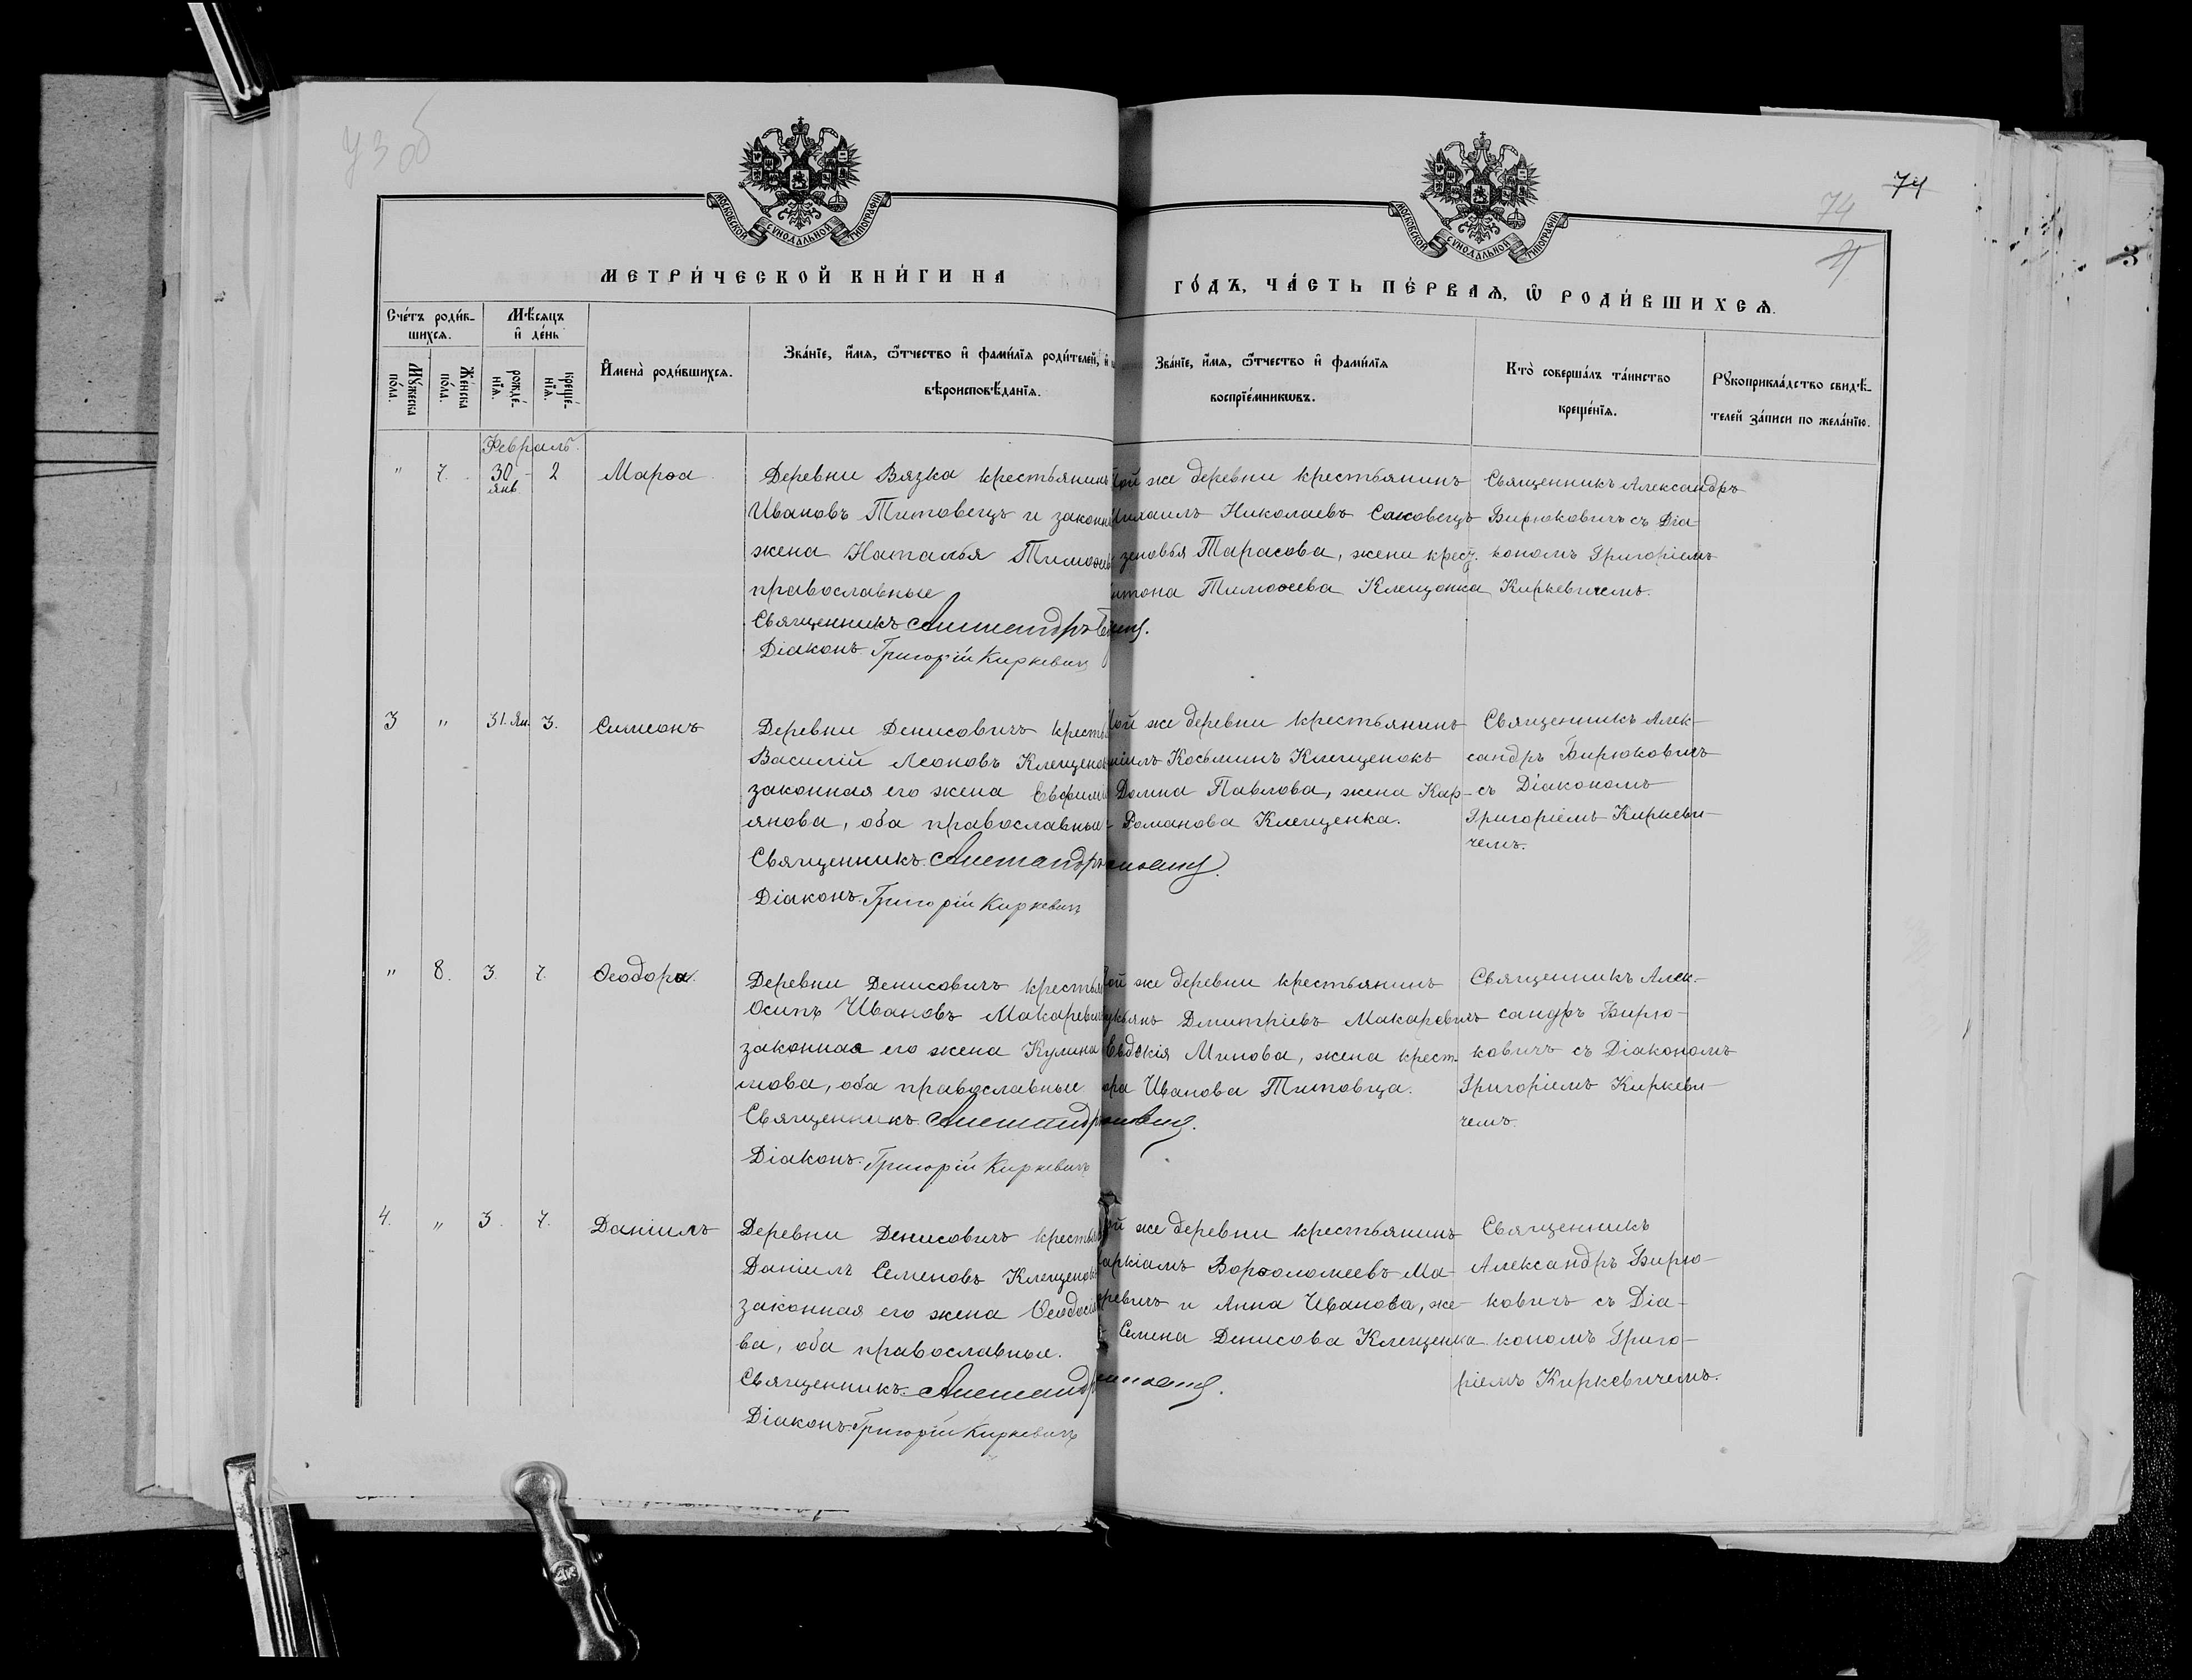 73 об
74
74
МОСКОВСКОЙ СѴНОДАЛЬНОЙ ТИПОГРАФІИ
МОСКОВСКОЙ СѴНОДАЛЬНОЙ ТИПОГРАФІИ
МЕТРИ́ЧЕСКОЙ КНИ́ГИ НА
ГО́ДЪ, ЧА́СТЬ ПЕ́РВАѦ, Ѽ РОДИ́ВШИХСѦ.
Сче́тъ роди́в-
шихсѧ.
Мꙋ́жеска по́ла.
Же́нска по́ла.
Мѣ́сѧцъ
и҆ де́нь
рожде́-
нїѧ.
креще́-
нїѧ.
И҆мена̀ роди́вшихсѧ.
Зва́нїе, и҆́мѧ, ѻ҆́тчество и҆ фами́лїѧ роди́телей, и҆
вѣроисповѣ́данїѧ.
Зва́нїе, и҆́мѧ, ѻ҆́тчество и҆ фами́лїѧ
воспрїе́мникѡвъ.
Кто̀ соверша́лъ та́инство
креще́нїѧ.
Рꙋкоприкла́дство свидѣ́-
телей за́писи по жела́нїю.
Февраль.
" 7. 30 янв. 2 Марѳа
Деревни Вязка крестьянинъ
Ивановъ Титовецъ и законн
жена Наталья Тимоѳев
православные
Священникъ Александръ
Діаконъ Григорій Киркевичъ
той же деревни крестьянинъ
Михаилъ Николаевъ Саковецъ
зеновья Тарасова, жена крест.
Тимоѳева Клещонка
Священникъ Александръ
Бирюковичъ съ Діа-
кономъ Григоріемъ
Киркевичемъ.
3 " 31. Ян. 3. Симеонъ
Деревни Денисовичъ кресть
Василій Леоновъ Клещенок
законная его жена Евфимі
янова, оба православные
Священникъ Александръ
Діаконъ Григорій Киркевичъ
той же деревни крестьянинъ
Косьминъ Клещенокъ
Домна Павлова, жена Кар-
Романова Клещенка.
Священникъ Алек-
сандръ Бирюковичъ
съ Діакономъ
Григоріемъ Киркеви-
чемъ.
" 8. 3. 7. Ѳеодора.
Деревни Денисовичъ крестья
Осипъ Ивановъ Макаревич
законная его жена Кулина
мова, оба православные
Священникъ Александр
Діаконъ Григорій Киркевичъ
той же деревни крестьянинъ
Дмитріевъ Макаревичъ
Евдокія Минова, жена крест.
Иванова Титовца.
Священникъ Алек-
сандръ Бирю-
ковичъ съ Діакономъ
Григоріемъ Киркеви-
чемъ.
4. " 3. 7. Даніилъ
Деревни Денисовичъ кресть
Даніилъ Семеновъ Клещенок
законная его жена Ѳеодосія
ва, оба православные.
Священникъ Александр
Діаконъ Григорій Киркевичъ
той же деревни крестьянинъ
Варѳоломеевъ Ма-
каревичъ и Анна Иванова, же-
Семена Денисова Клещенка
Священникъ
Александръ Бирю-
ковичъ съ Діа-
кономъ Григо-
ріемъ Киркевичемъ.